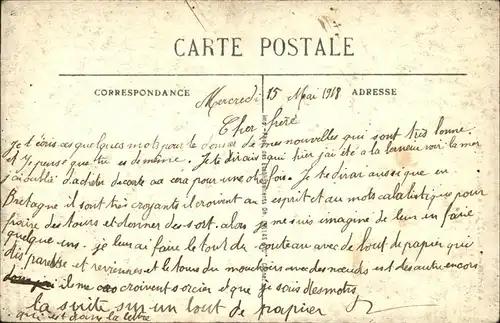 CARTE POSTALE
CORRESPONDANCE
ADRESSE
Mercredi 15 Mai 1918
Cher frère
Je t'écris ces quelques mots pour te donner de mes nouvelles qui sont très bonne
et je pense que tu es de même. Je te dirais qui hier j'ai été a la voir la mer
j'ai oublié d'acheter de carte ca cera pour une otre fois. Je te dirai aussi que en
Bretagne il sont très croyants il croivent au esprit et au mots cabalistique pour
faire des tours et donner des sort. alors je me suis imagine de leur en faire
quelque uns. je leur ai faire le tour du couteau avec de bout de papier qui
disparesse et reviennes et le tours du mouchoirs avec des nœuds est des autre encors
il me croivent sorcier et que je sais des mots
la suite sur un bout de papier
qui est dans la lettre